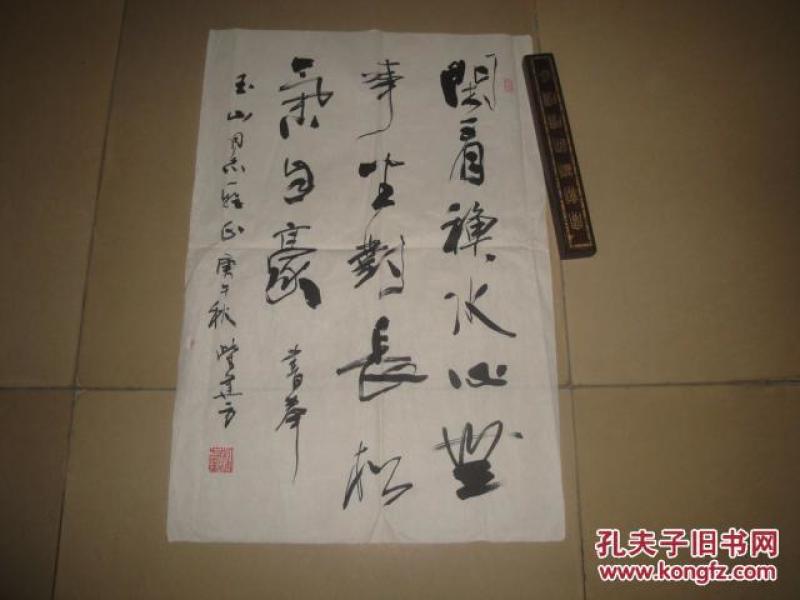 閑看禅水心無
事坐對長松
氣自豪 書奉
玉山同志雅正 庚午秋
孔夫子旧书网
www.kongfz.com